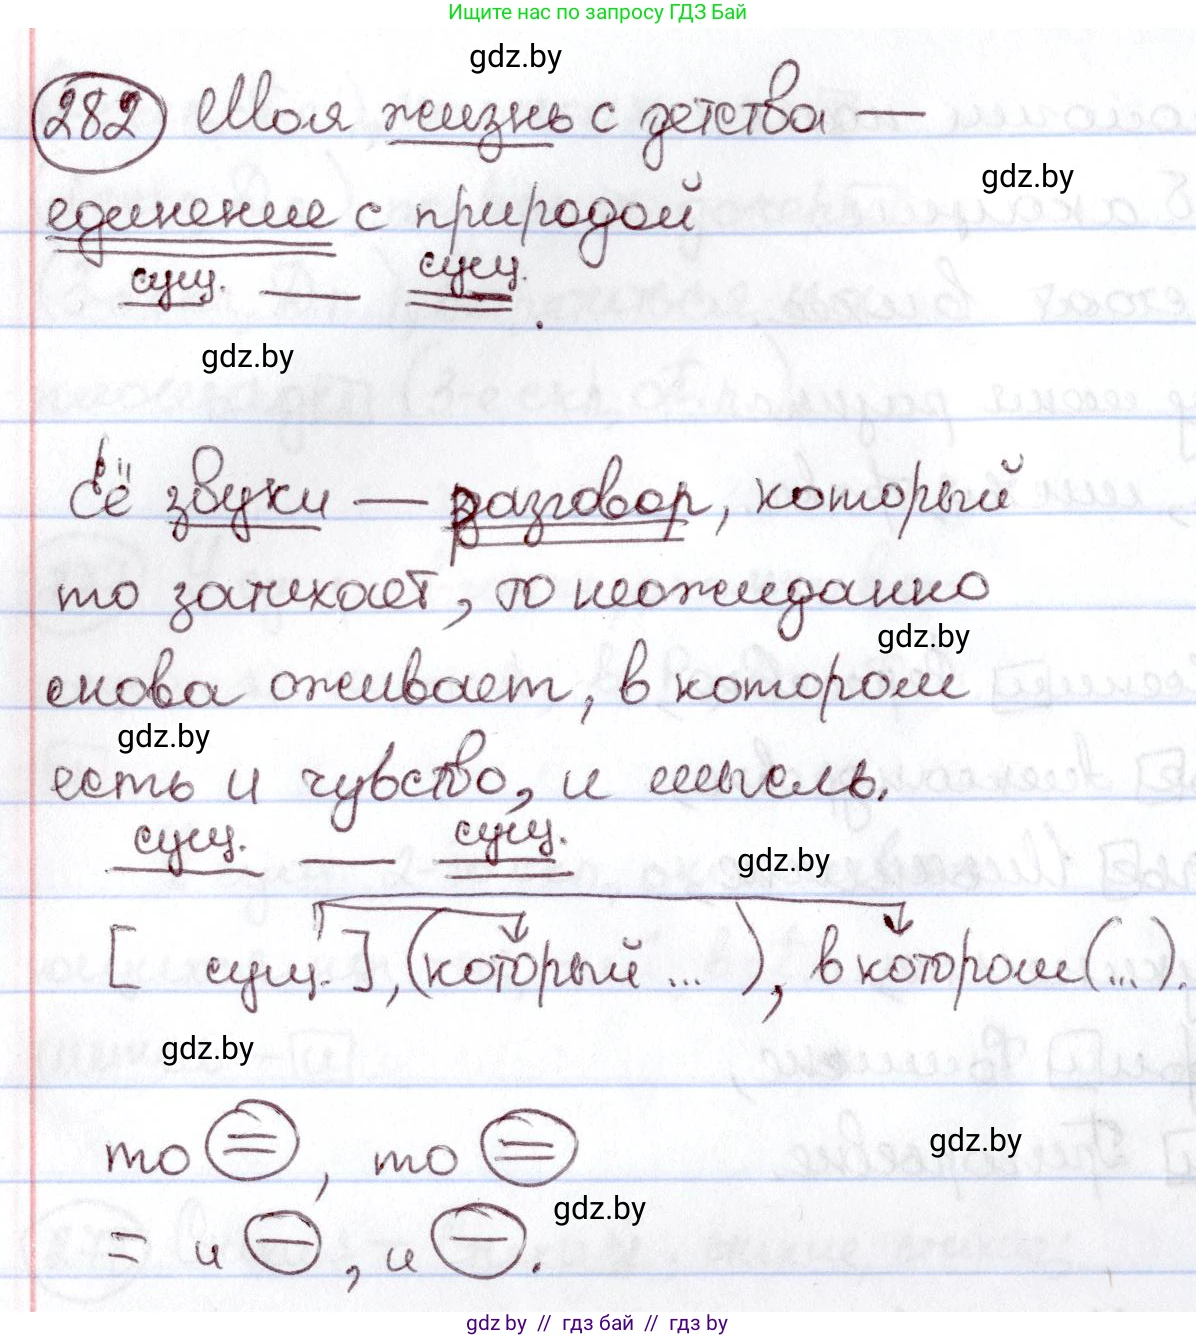 Ищите нас по запросу ГДЗ Бай
gdz.by
282 Моя жизнь с детства —
gdz.by
единение с природой
сущ. — сущ.
gdz.by
Её звуки — разговор, который
то затихает, то неожиданно
gdz.by
снова оживает, в котором
gdz.by
есть и чувство, и мысль.
сущ. — сущ.
gdz.by
[ сущ.], (который ... ), в котором (...).
gdz.by
то =, то =
gdz.by
gdz.by
= и —, и —.
gdz.by // гдз бай // гдз by